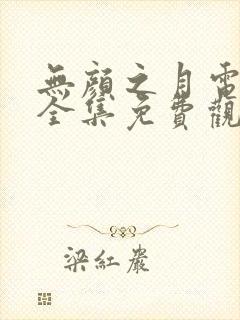 無顏之月電
全集免費觀
梁紅巖